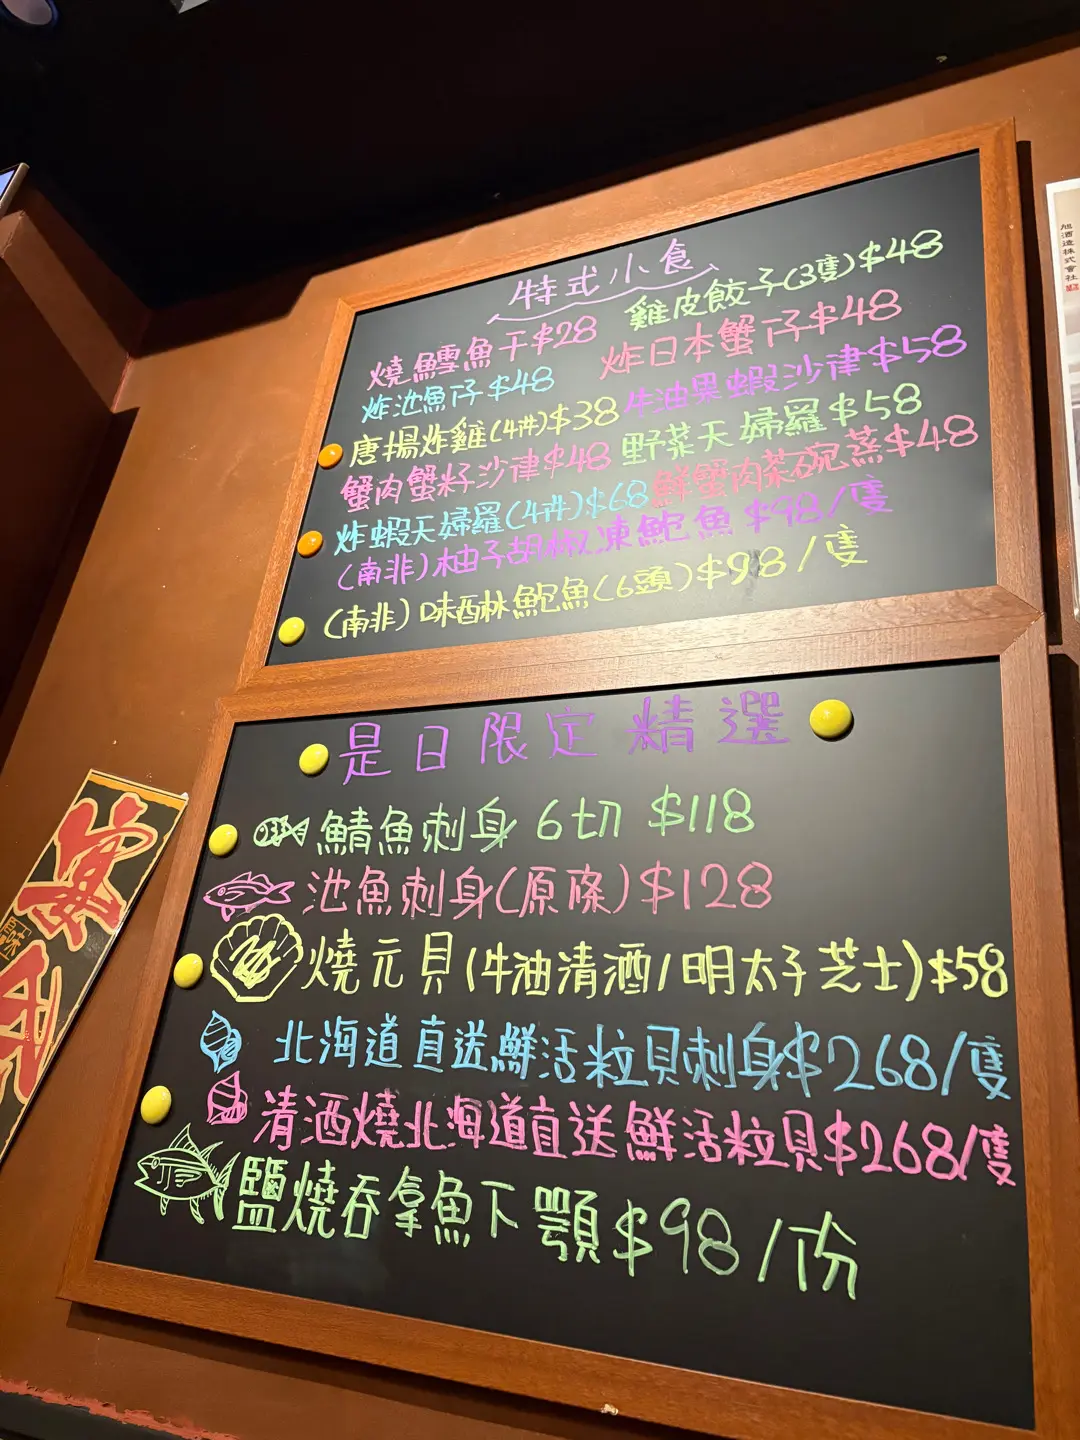 特式小食
雞皮餃子(3隻)$48
燒鱈魚干$28
炸日本蟹仔$48
炸池魚仔$48
牛油果蝦沙津$58
唐揚炸雞(4件)$38
野菜天婦羅$58
蟹肉蟹籽沙律$48
鮮蟹肉茶碗蒸$48
炸蝦天婦羅(4件)$68
(南非)柚子胡椒凍鮑魚 $98/隻
(南非)味醂林鮑魚(6頭)$98/隻
是日限定精選
鯖魚刺身 6切 $118
池魚刺身(原條)$128
燒元貝(牛油清酒/明太子芝士)$58
北海道直送鮮活粒貝刺身$268/隻
清酒燒北海道直送鮮活粒貝$268/隻
鹽燒吞拿魚下顎$98/份
旭酒造株式会社
宴